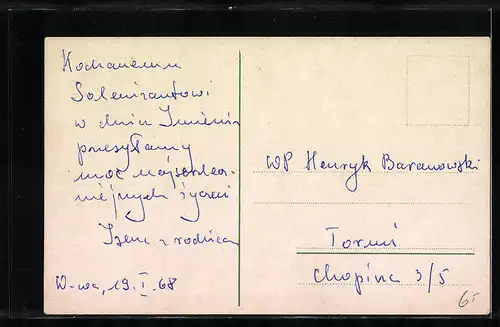 Kochanemu
Solenizantowi
w dniu Imienin
przesyłamy
moc najserdecz-
niejnych życzeń
z rodzicam
W-wa, 19.I.68
WP Henryk Baranowski
Toruń
Chopina 3/5
6.-